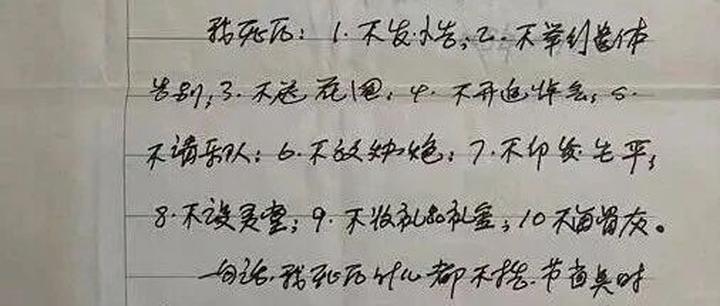 我死后：1.不发讣告；2.不举行遗体
告别；3.不送花圈；4.不开追悼会；5.
不请乐队；6.不放炮；7.不印发生平；
8.不设灵堂；9.不收礼品礼金；10不留骨灰。
一句话，我死后什么都不搞.节省时